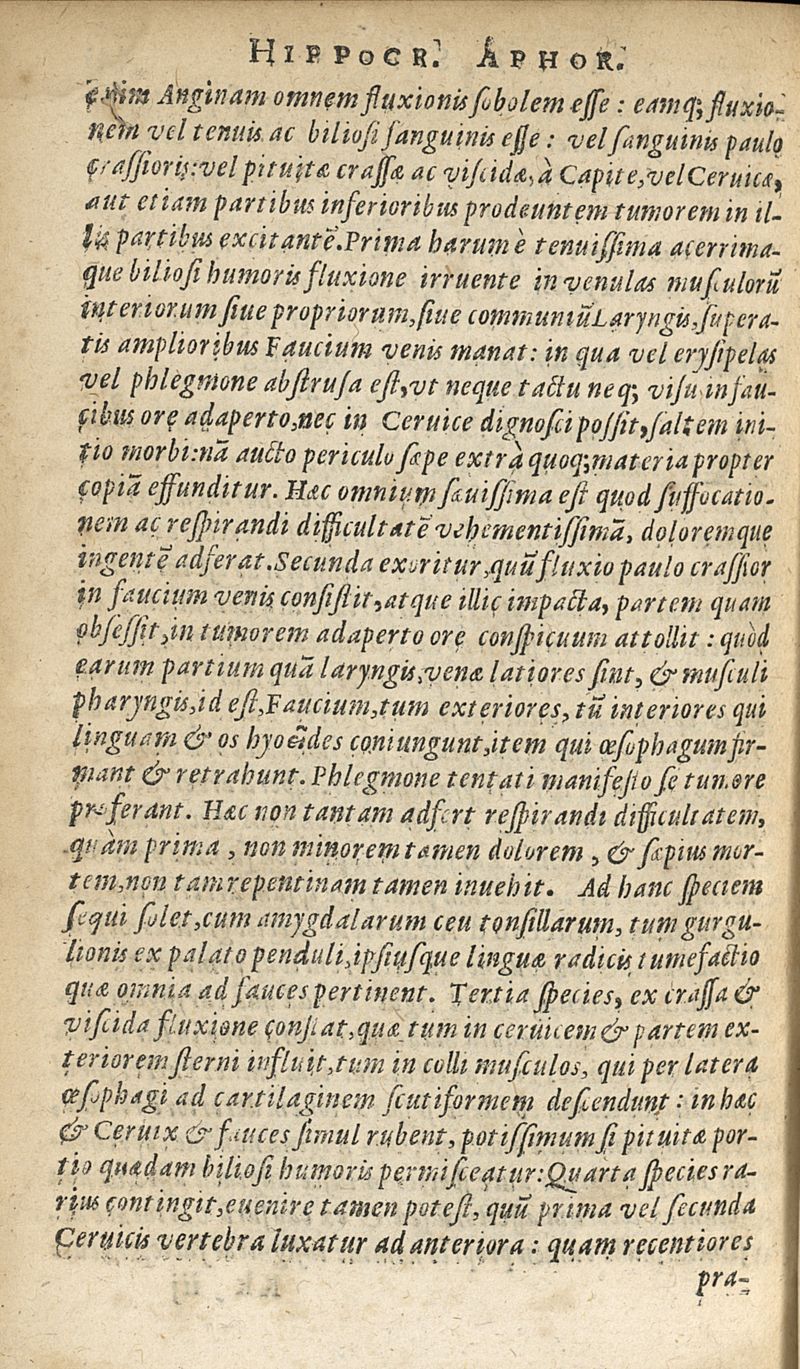 HIPPOCR. APHOR.
enim Anginam omnem fluxionis sobolem esse : eamq; fluxio-
nem vel tenuis ac biliosi sanguinis esse : vel sanguinis paulo
crassioris: vel pituitæ crassæ ac viscidæ, à Capite, vel Ceruicæ,
aut etiam partibus inferioribus prodeuntem tumorem in il-
lis partibus excitantẽ. Prima harum è tenuissima acerrima-
que biliosi humoris fluxione irruente in venulas musculorũ
interiorum siue propriorum, siue communiũ Laryngis, supera-
tis amplioribus Faucium venis manat: in qua vel erysipelas
vel phlegmone abstrusa est, vt neque tactu neq; visu in fau-
cibus ore adaperto, nec in Ceruice dignosci possit, saltem ini-
tio morbi: nã aucto periculo sæpe extrà quoq; materia propter
copiã effunditur. Hæc omnium sæuissima est quod suffocatio-
nem ac respirandi difficultatẽ vehementissimã, doloremque
ingentẽ adferat. Secunda exoritur, quũ fluxio paulo crassior
in faucium venis consistit, atque illic impacta, partem quam
obsessit, in tumorem adaperto ore conspicuum attollit : quòd
earum partium quã laryngis, venæ latiores sint, & musculi
pharyngis, id est, Faucium, tum exteriores, tũ interiores qui
linguam & os hyoẽides coniungunt, item qui œsophagum fir-
mant & retrahunt. Phlegmone tentati manifesto se tumore
proferant. Hæc non tantam adfert respirandi difficultatem,
quàm prima , non minorem tamen dolorem , & sæpius mor-
tem, non tam repentinam tamen inuehit. Ad hanc speciem
sequi solet, cum amygdalarum ceu tonsillarum, tum gurgu-
lionis ex palato penduli, ipsiusque linguæ radicis tumefactio
quæ omnia ad fauces pertinent. Tertia species, ex crassa &
viscida fluxione constat, quæ tum in ceruicem & partem ex-
teriorem sterni influit, tum in colli musculos, qui per latera
œsophagi ad cartilaginem scutiformem descendunt : in hac
& Ceruix & fauces simul rubent, potissimum si pituitæ por-
tio quædam biliosi humoris permisceatur: Quarta species ra-
rius contingit, euenire tamen potest, quũ prima vel secunda
Ceruicis vertebra luxatur ad anteriora : quam recentiores
pra-